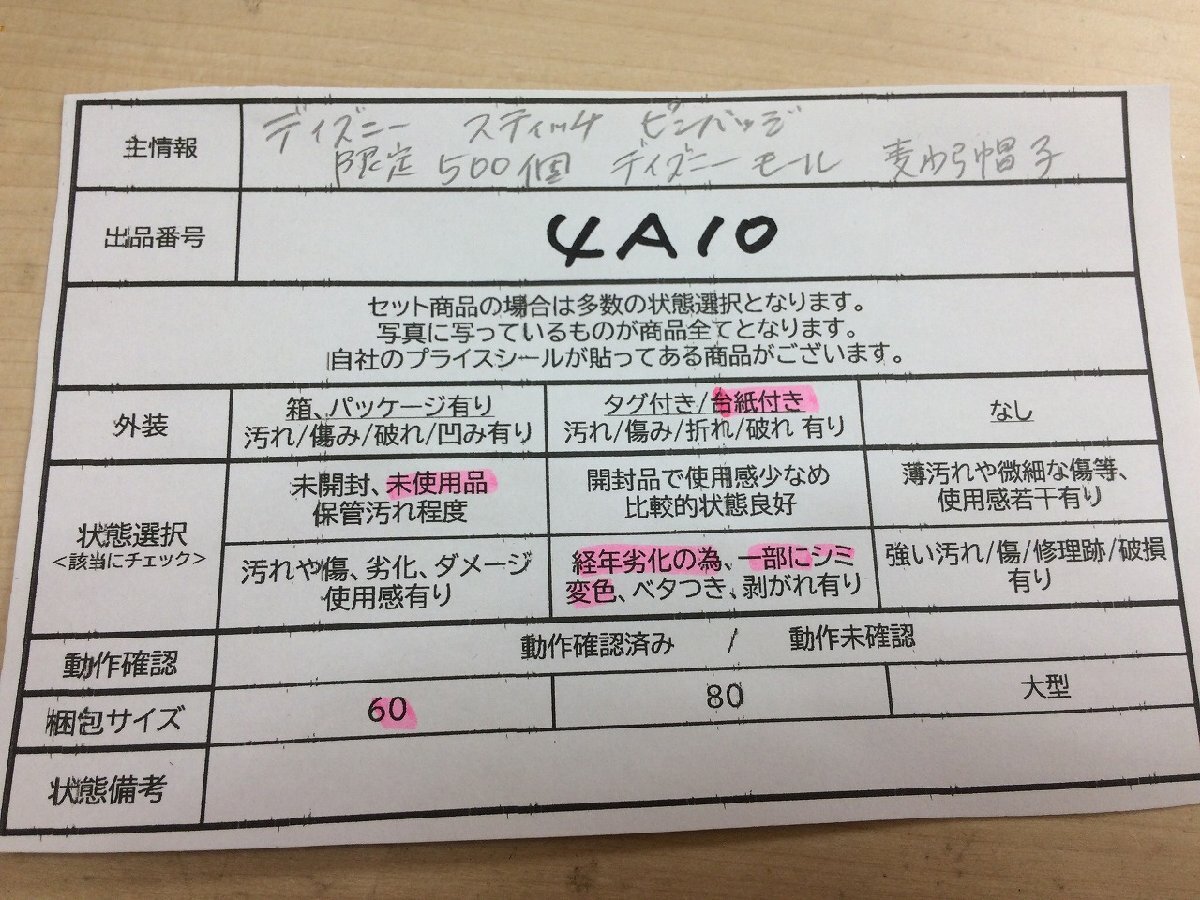 主情報
ディズニー スティッチ ピンバッジ
限定500個 ディズニーモール 麦わら帽子
出品番号
4A10
セット商品の場合は多数の状態選択となります。
写真に写っているものが商品全てとなります。
自社のプライスシールが貼ってある商品がございます。
外装
箱、パッケージ有り
汚れ/傷み/破れ/凹み有り
タグ付き/台紙付き
汚れ/傷み/折れ/破れ 有り
なし
状態選択
<該当にチェック>
未開封、未使用品
保管汚れ程度
開封品で使用感少なめ
比較的状態良好
薄汚れや微細な傷等、
使用感若干有り
汚れや傷、劣化、ダメージ
使用感有り
経年劣化の為、一部にシミ
変色、ベタつき、剥がれ有り
強い汚れ/傷/修理跡/破損
有り
動作確認
動作確認済み / 動作未確認
梱包サイズ
60
80
大型
状態備考